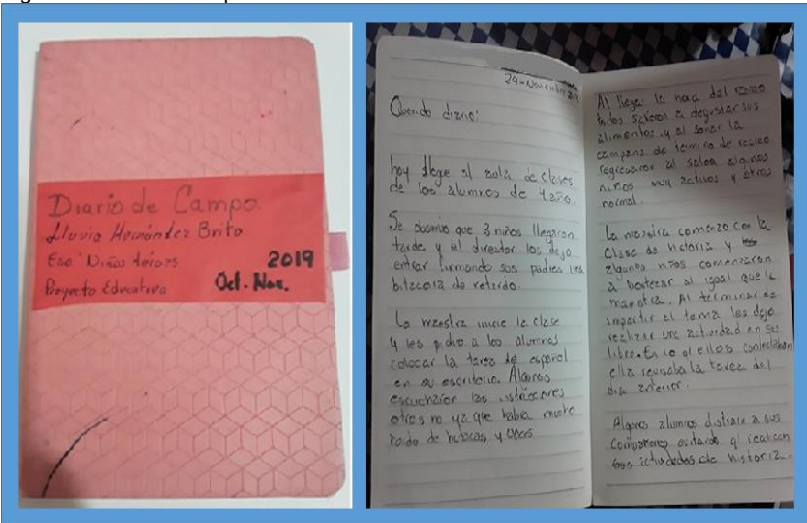 Diario de Campo.
Lluvia Hernández Brito
Esc. Niños Héroes 2019
Proyecto Educativo Oct. Nov.
29-Noviembre 2019
Querido diario:
hoy llege al aula de clases
de los alumnos de 4año.
Se observo que 3 niños llegaron
tarde y el director los dejo
entrar firmando sus padres la
bitacora de retardo.
La maestra inicie la clase
y les pidio a los alumnos
colocar la tarea de español
en su escritorio. Algunos
escucharon las instrucciones
otros no ya que habia mucho
roido de butacas y
Al llegar la hora del receso
todos salieron a degustar sus
alimentos y al sonar la
campana de termino de receso
regresaron al salon algunos
niños muy activos y otros
normal.
La maestra comenzo con la
clase de historia y
algunos niños comenzaron
a bostezar al igual que la
maestra. Al terminar de
impartir el tema les dejo
realizar una actividad en su
libro. En lo q ellos contestaban
ella revisaba la tarea del
dia anterior.
Algunos alumnos distraie a sus
compañeros evitando q realicen
sus actividades de historia.